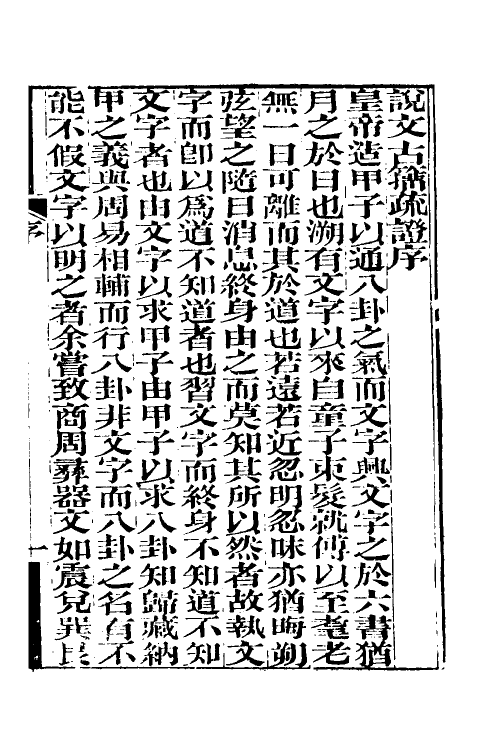 說文古籀疏證序
皇帝造甲子以通八卦之氣而文字興文字之於六書猶
月之於日也溯有文字以來自童子束髮就傅以至耄老
無一日可離而其於道也若遠若近忽明忽昧亦猶晦朔
弦望之隨日消息終身由之而莫知其所以然者故執文
字而卽以爲道不知道者也習文字而終身不知道不知
文字者也由文字以求甲子由甲子以求八卦知歸藏納
甲之義與周易相輔而行八卦非文字而八卦之名有不
能不假文字以明之者余嘗致商周彝器文如震兌巽艮
序
一